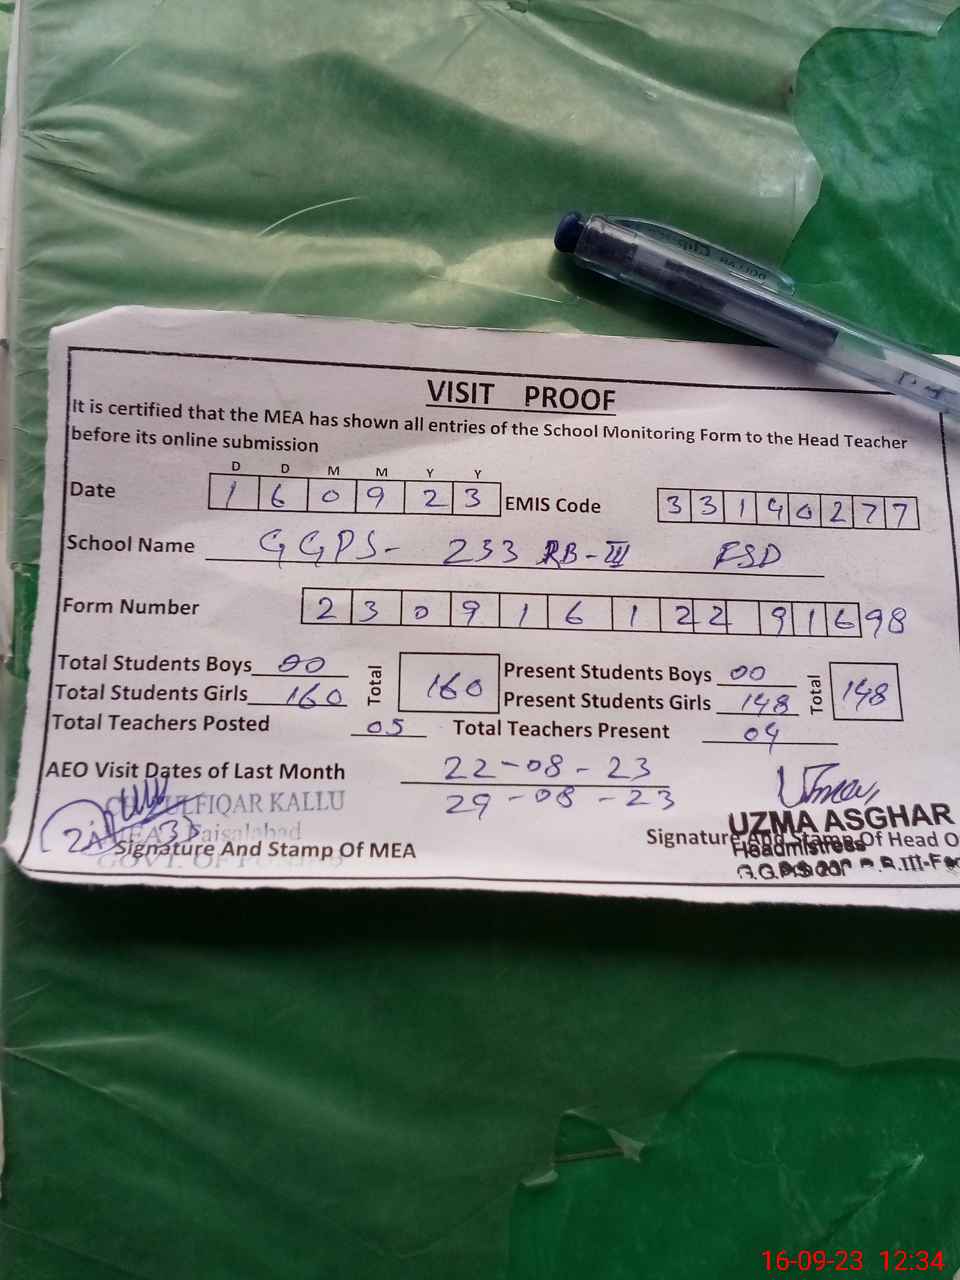 VISIT PROOF
It is certified that the MEA has shown all entries of the School Monitoring Form to the Head Teacher
before its online submission
D D M M Y Y
Date 1 6 0 9 2 3 EMIS Code 3 3 1 4 0 2 7 7
School Name GGPS- 233 RB-III FSD
Form Number 2 3 0 9 1 6 1 2 2 9 1 6 98
Total Students Boys 00 Total 160 Present Students Boys 00 Total 148
Total Students Girls 160 Present Students Girls 148
Total Teachers Posted 05 Total Teachers Present 04
AEO Visit Dates of Last Month 22-08-23
29-08-23
ZULFIQAR KALLU
MEA 33 Faisalabad
Signature And Stamp Of MEA
GOVT. OF
UZMA ASGHAR
Signature And Stamp Of Head
Headmistress
16-09-23 12:34